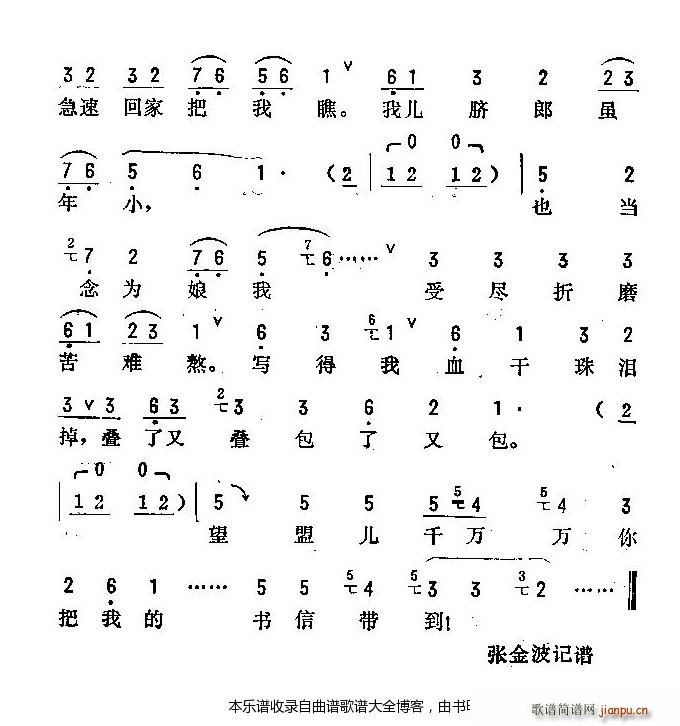 3 2 3 2 7 6 5 6 1 ∨ 6 1 3 2 2 3
急速 回家 把 我 瞧。我儿 脐 郎 虽
7 6 5 6 1· ( 2 | 0 1 2 0 1 2 ) | 5 2
年 小, 也 当
2 7 2 7 6 5 7 6 ······ ∨ 3 3 3 3
念 为 娘 我 受 尽 折 磨
6 1 2 3 1 ∨ 6 3 6 1 6 1 3 2
苦 难 熬。写 得 我 血 干 珠 泪
3 ∨ 3 6 3 2 3 3 6 2 1· ( 2
掉, 叠 了又 叠 包 了 又 包。
0 1 2 0 1 2 ) | 5 5 5 5 5 4 5 4 3
望 盟 儿 千 万 万 你
2 6 1 ······ 5 5 5 4 5 3 3 3 2 ······
把 我 的 书 信 带 到!
张金波记谱
本乐谱收录自曲谱歌谱大全博客，由书
歌谱简谱网
jianpu.cn